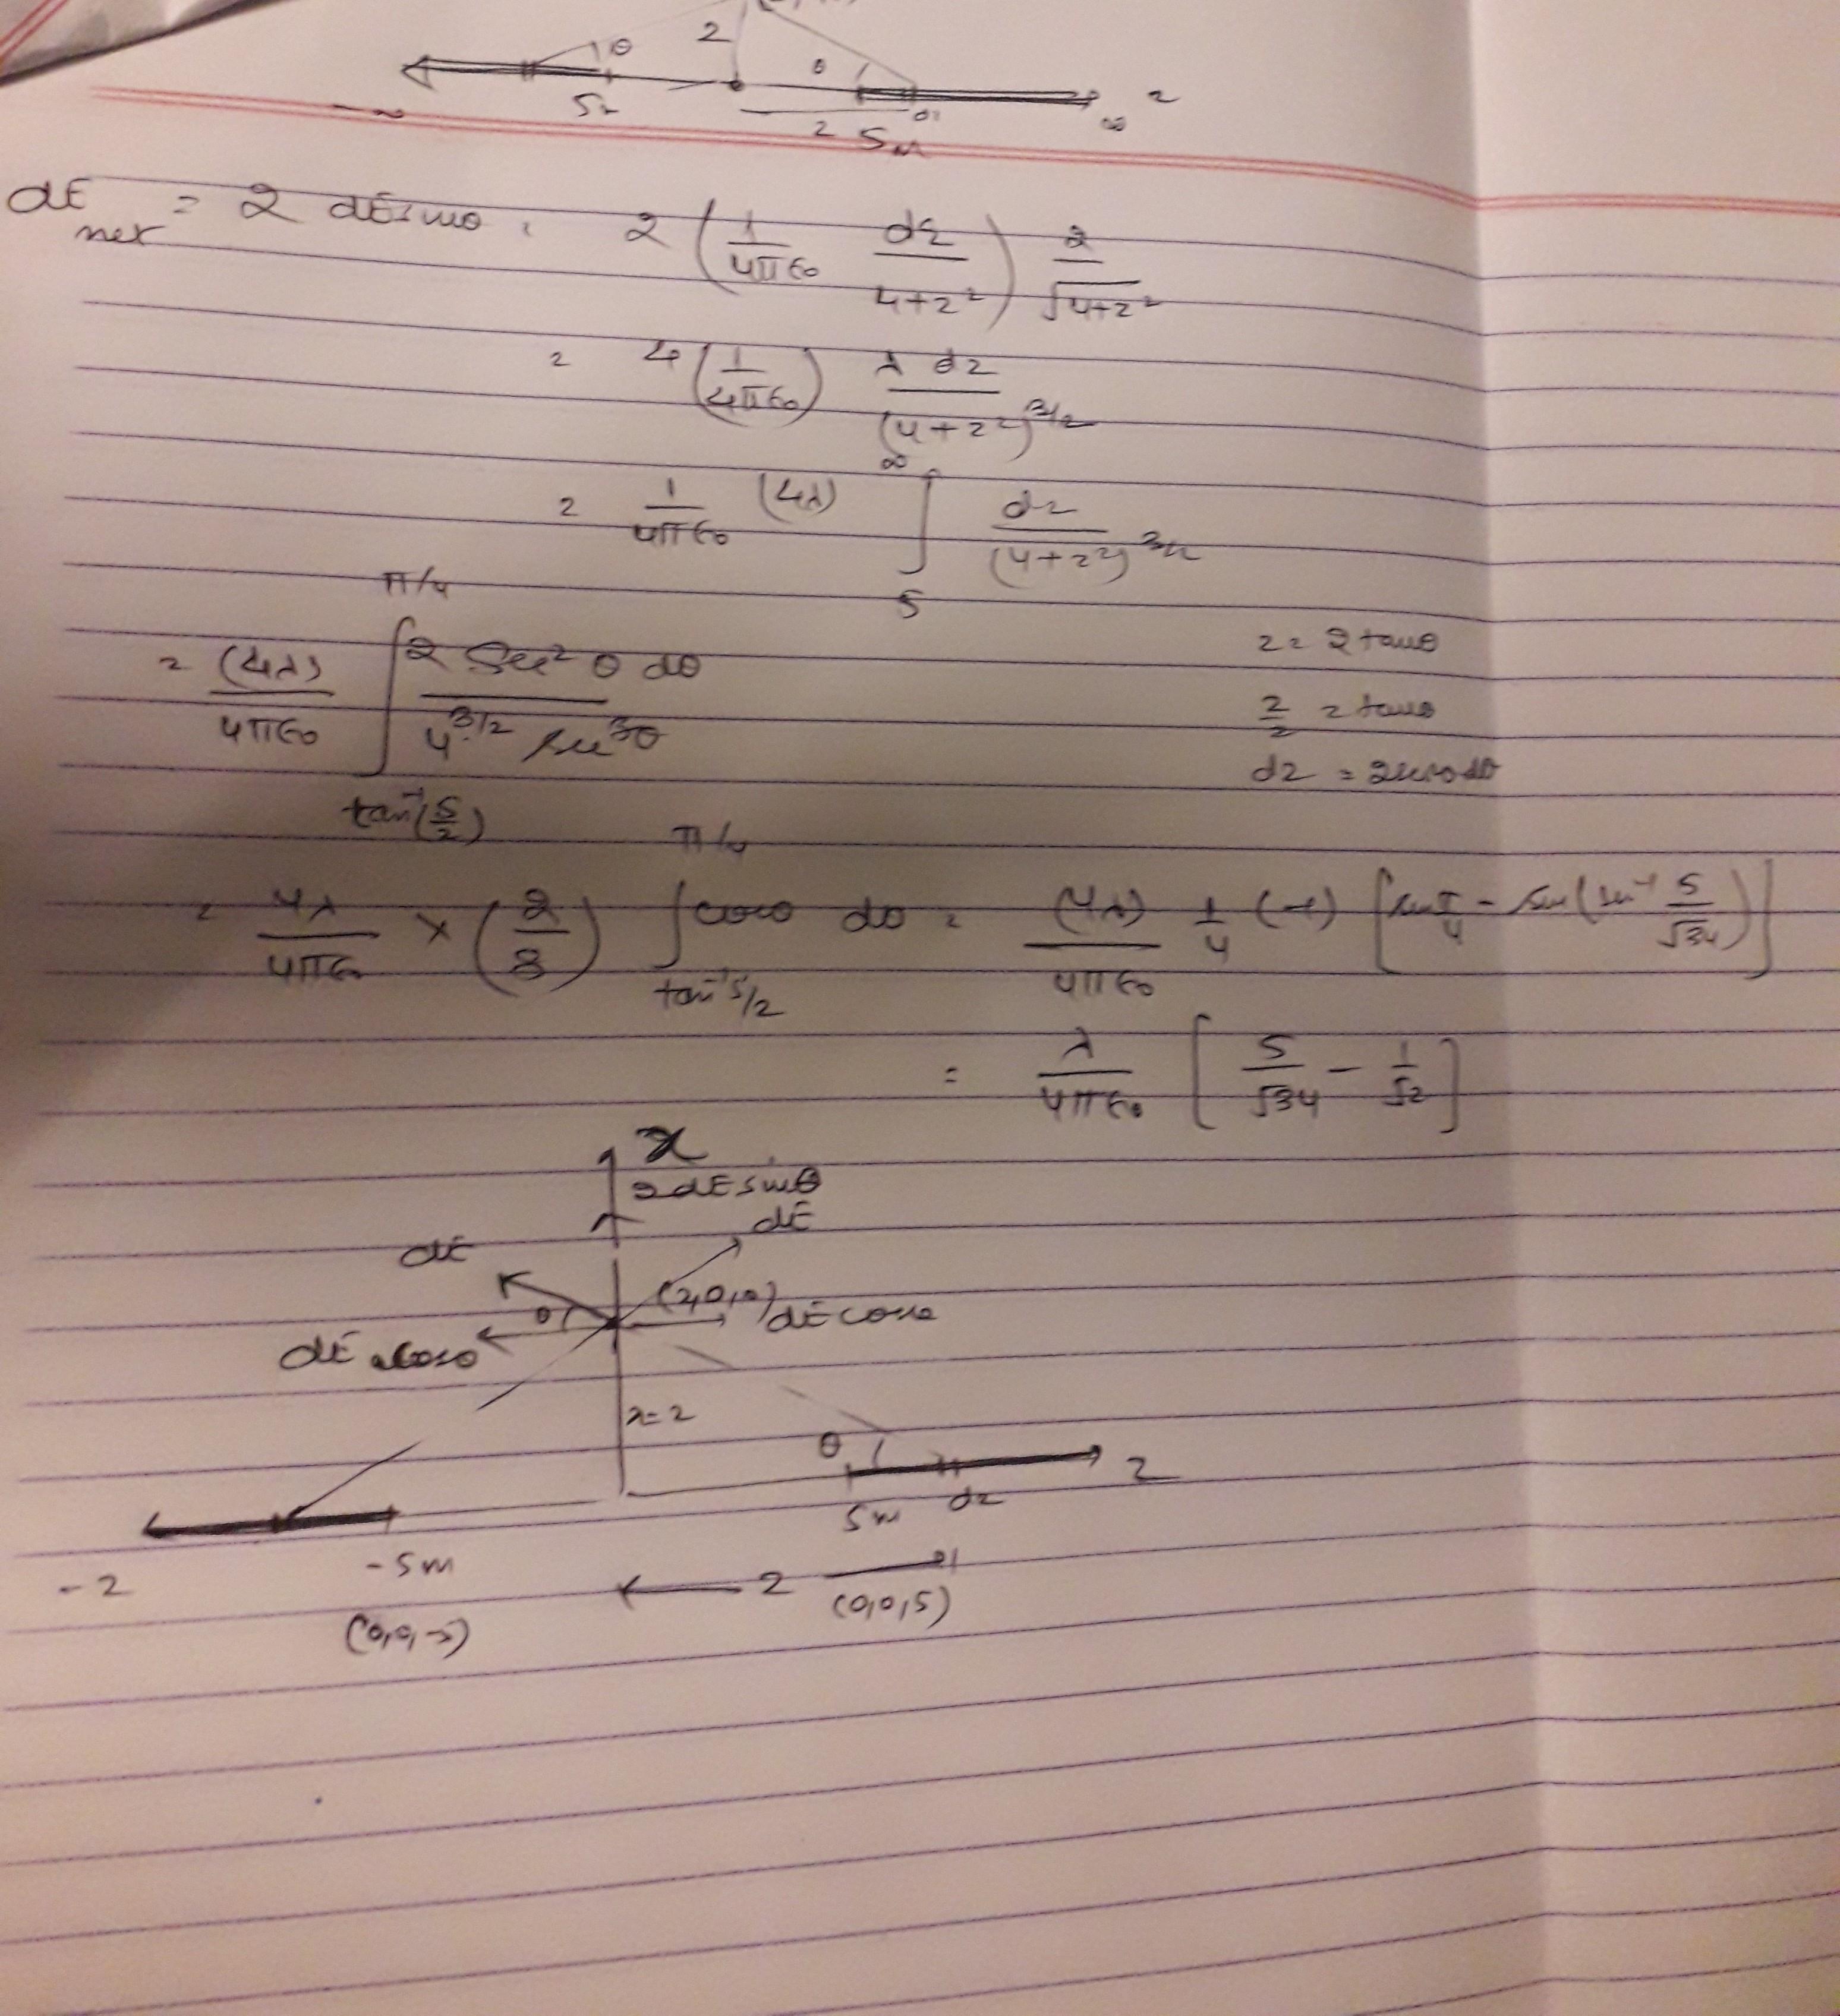 2
θ
θ
5
∞
z
2 5m
dE net = 2 dE sinθ = 2 (1/4πϵ₀ dz/4+z²) 2/√4+z²
= 4 (1/4πϵ₀) λ dz/(4+z²)^3/2
= 1/4πϵ₀ (4λ) ∫₅^∞ dz/(4+z²)^3/2
= (4λ)/4πϵ₀ ∫_{tan⁻¹(5/2)}^{π/4} 2 sec²θ dθ/4^3/2 sec³θ
z = 2 tanθ
z/2 = tanθ
dz = 2sec²θ dθ
= 4λ/4πϵ₀ × (2/8) ∫_{tan⁻¹5/2}^{π/4} cosθ dθ = (4λ)/4πϵ₀ 1/4 (-1) [sin π/4 - sin(sin⁻¹ 5/√34)]
= λ/4πϵ₀ [5/√34 - 1/√2]
x
2dE sinθ
dE
dE
(2,0,0)
θ
dE cosθ
dE cosθ
x=2
θ
z
5m dz
-5m
-z
z
(0,0,5)
(0,0,-5)